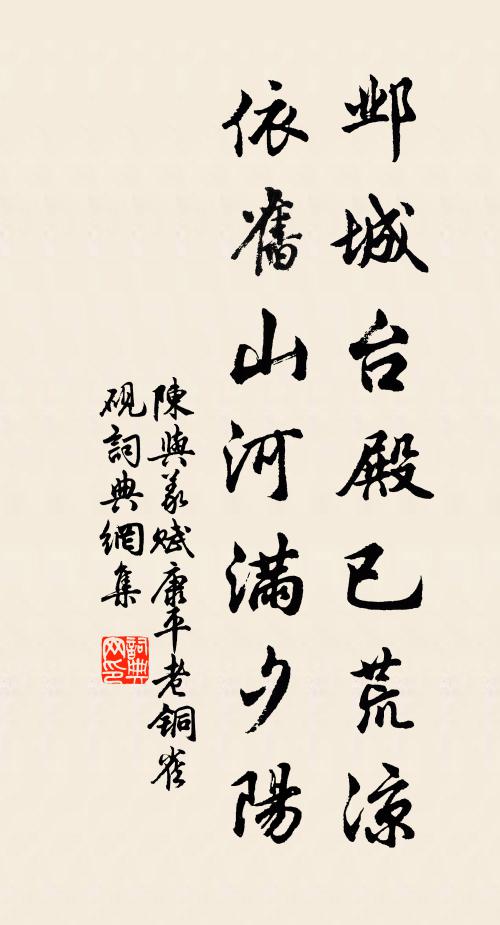 邺城台殿已荒凉
依舊山河满夕陽
陳與義賦康平老銅雀
硯詞典網集
詞典
网印